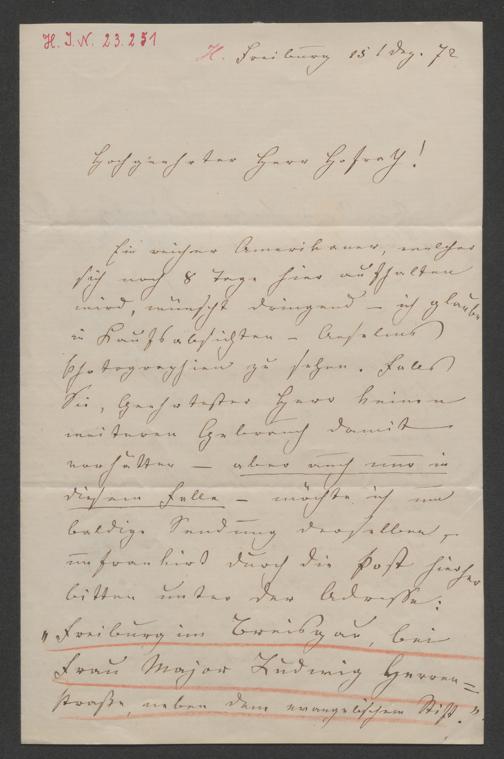 H. I. N. 23.251
H. Freiburg 15 / Dez. 72
Hochgeehrter Herr Hofrath!
Ein reicher Amerikaner, welcher
sich noch 8 Tage hier aufhalten
wird, wünscht dringend – ich glaube
in Kaufsabsichten – Anselms
Photographien zu sehen. Falls
Sie, Geehrtester Herr keinen
weiteren Gebrauch damit
vorhätten – aber auch nur in
diesem Falle – möchte ich um
baldige Sendung derselben,
unfrankirt durch die Post hierher
bitten unter der Adresse:
"Freiburg im Breisgau, bei
Frau Major Ludwig Herren=
straße, neben dem evangelischem Stift."